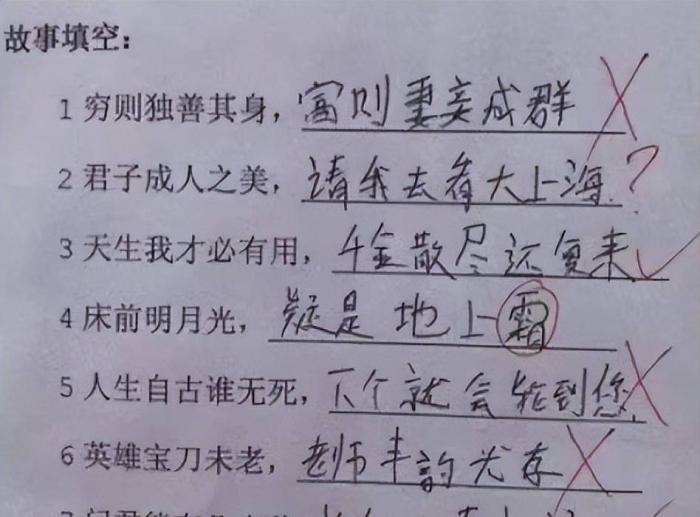 故事填空：
1 穷则独善其身，富则妻妾成群
2 君子成人之美，请我去看大上海
3 天生我才必有用，千金散尽还复来
4 床前明月光，疑是地上霜
5 人生自古谁无死，下个就会轮到您
6 英雄宝刀未老，老师丰韵尤存